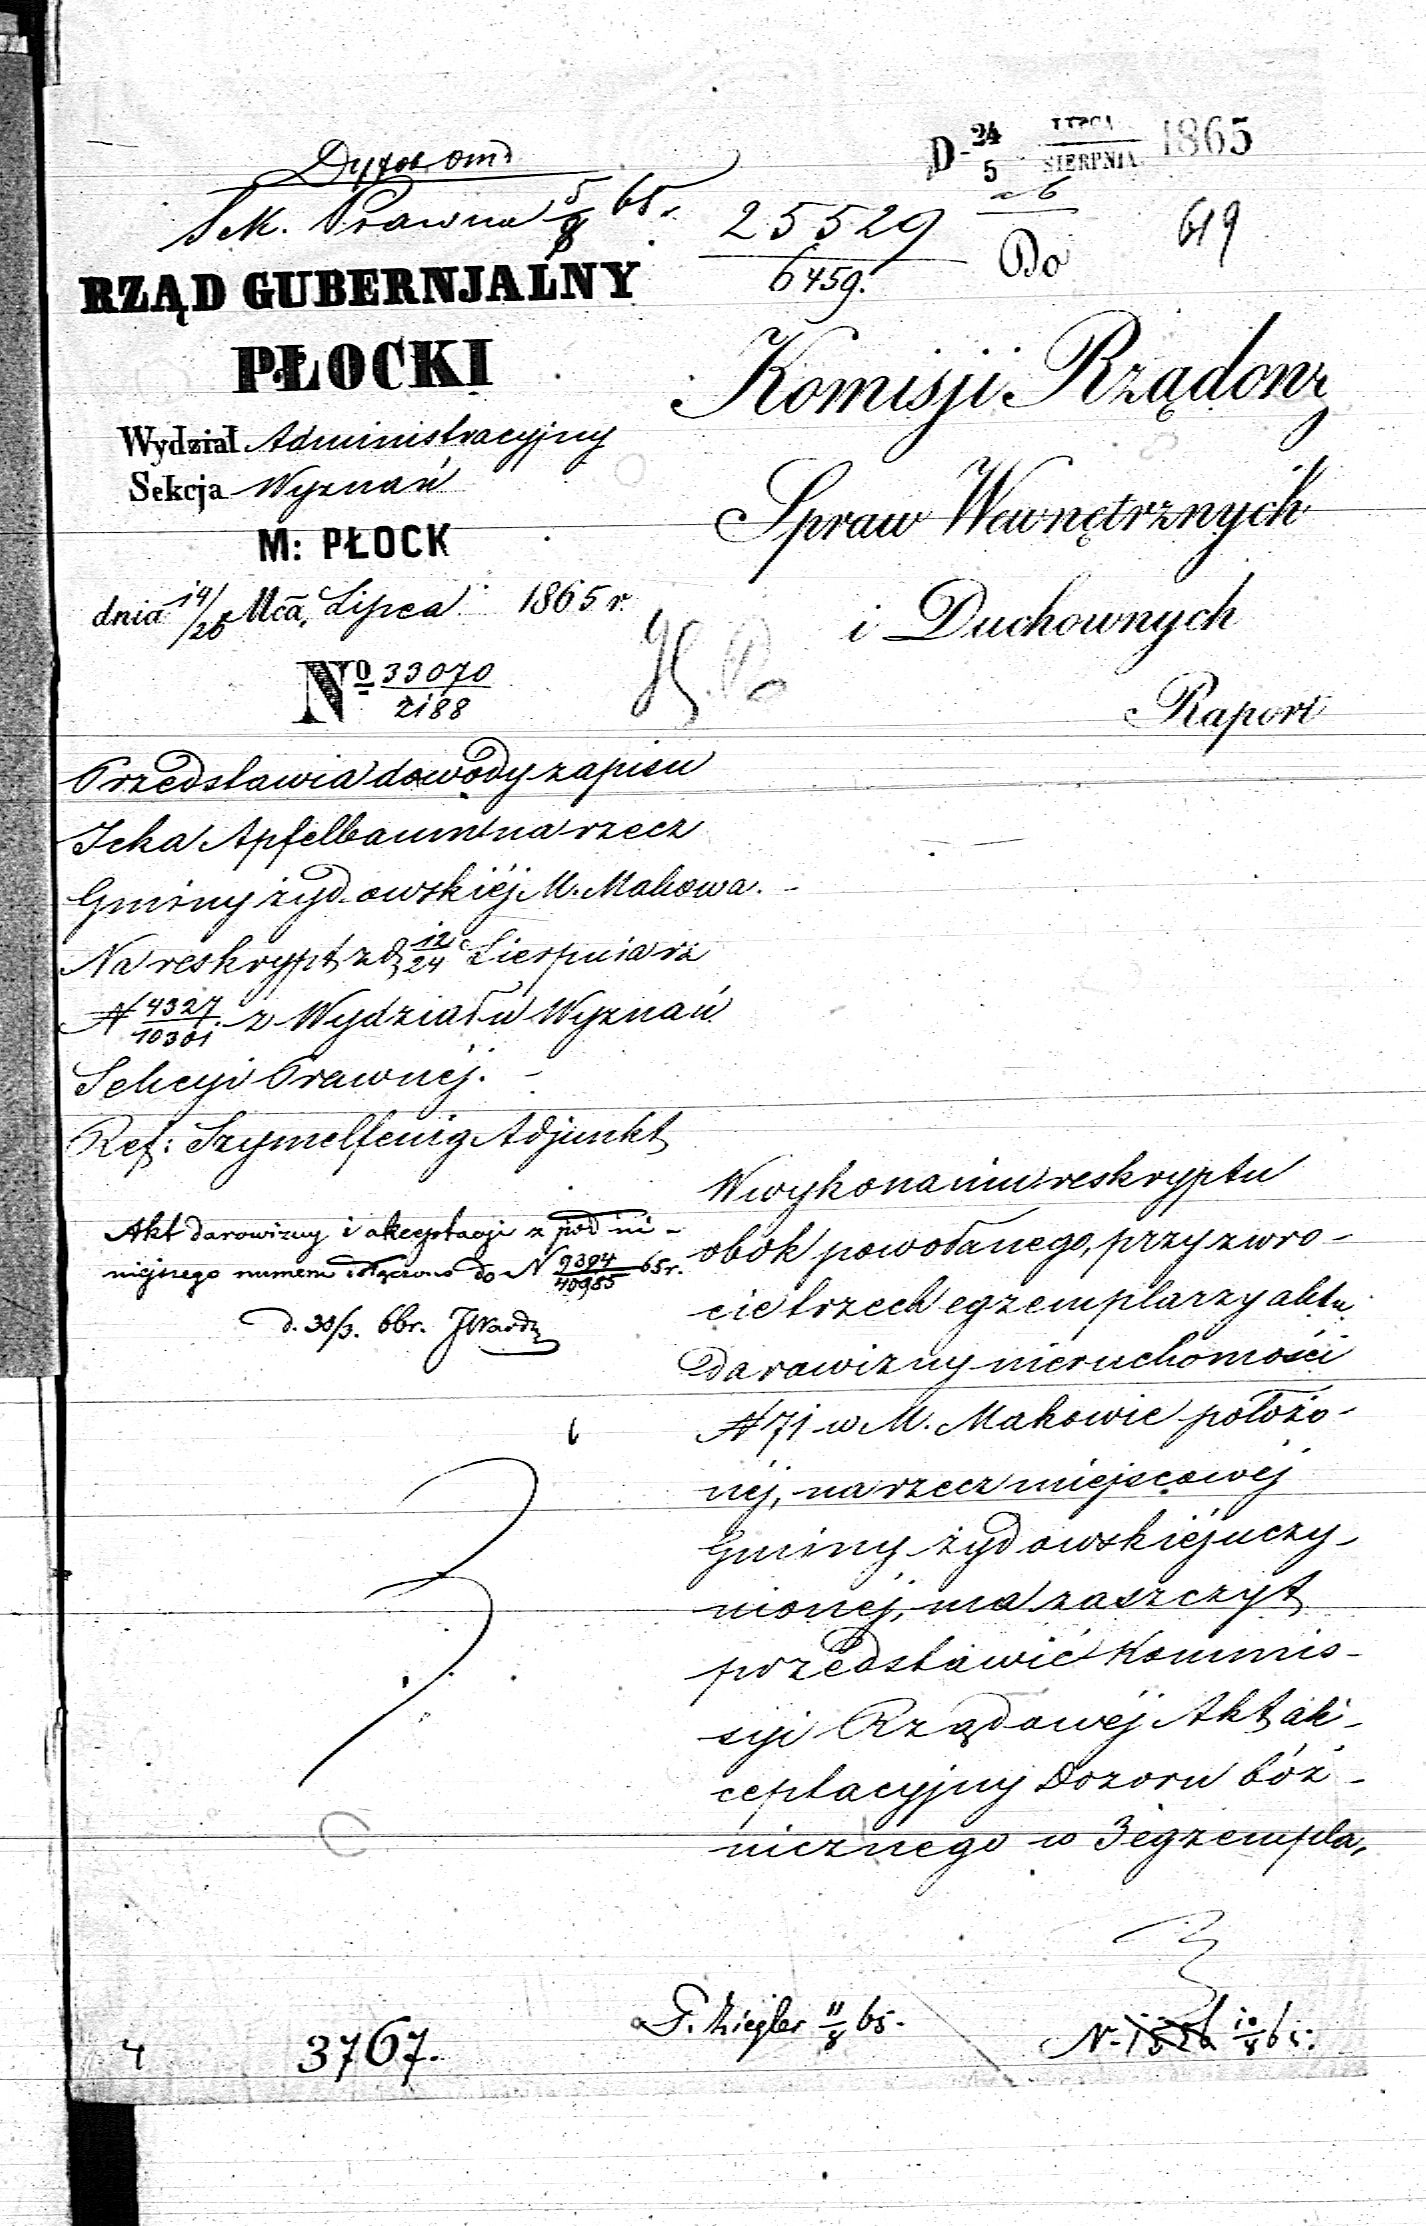 D. 24/5 LIPCA/SIERPNIA 1865
Sek. Prawna 5/8 65r.
25529/6459.
619
RZĄD GUBERNJALNY
PŁOCKI
Wydział Administracyjny
Sekcja Wyznań
M: PŁOCK
dnia 14/26 Mca, Lipca 1865 r.
No 33070/2188
Do
Komisji Rządowéj
Spraw Wewnętrznych
i Duchownych
Raport
Przedstawia dowody zapisu
Icka Apfelbaum na rzecz
Gminy żydowskiéj M. Makowa.
Na reskrypt z d 12/24 Sierpnia rz
N 4327/10301 z Wydziału Wyznań
Sekcyi Prawnéj.
Ref: Szymelfenig Adjunkt
Akt darowizny i akceptacji z pod ni-
niejszego numeru dołączono do N 9394/40985 65r.
W wykonaniu reskryptu
obok powołanego, przy zwro-
cie trzech egzemplarzy aktu
darowizny nieruchomości
N 71 w M. Makowie położo-
néj, na rzecz miejscowéj
Gminy żydowskiéj uczy-
nionéj, ma zaszczyt
przedstawić Kommis-
syi Rządowéj Akt ak-
ceptacyjny Dozoru bóż-
nicznego w 3 egzempla,
4
3767.
F. Ziegler 11/8 65.
N. 1526 10/8 65.